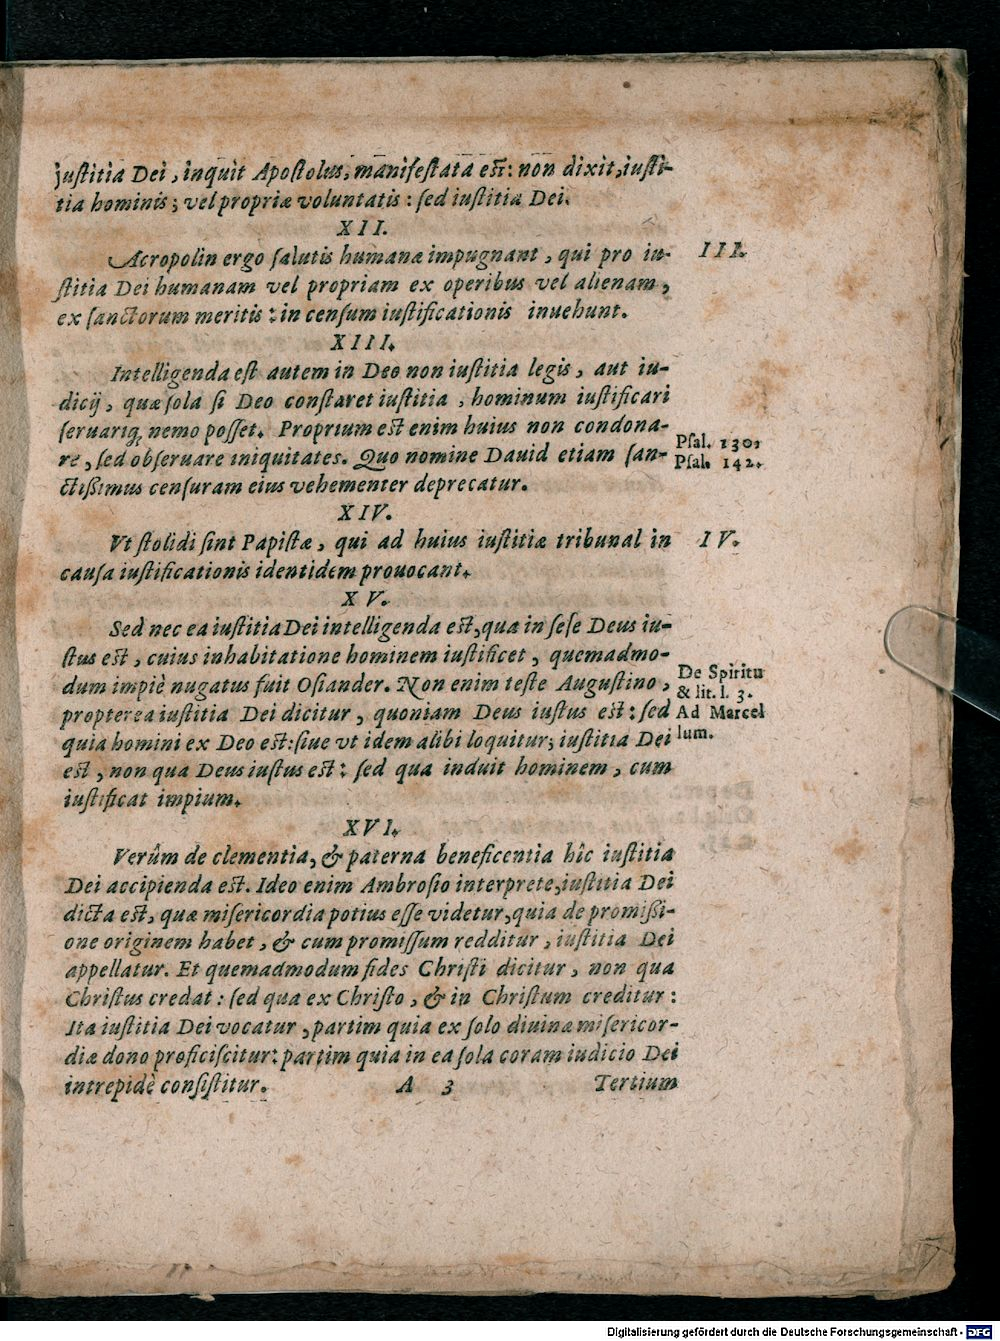 iuſtitia Dei, inquit Apoſtolus, manifeſtata eſt: non dixit, iuſti-
tia hominis; vel propriæ voluntatis: ſed iuſtitia Dei.
XII.
Acropolin ergo ſalutis humanæ impugnant, qui pro iu-
ſtitia Dei humanam vel propriam ex operibus vel alienam,
ex ſanctorum meritis: in cenſum iuſtificationis inuehunt.
III.
XIII.
Intelligenda eſt autem in Deo non iuſtitia legis, aut iu-
dicij, quæ ſola ſi Deo conſtaret iuſtitia, hominum iuſtificari
ſeruariq́ nemo poſſet. Proprium eſt enim huius non condona-
re, ſed obſeruare iniquitates. Quo nomine Dauid etiam ſan-
ctißimus cenſuram eius vehementer deprecatur.
Pſal. 130.
Pſal. 142.
XIV.
Vt ſtolidi ſint Papiſtæ, qui ad huius iuſtitiæ tribunal in
cauſa iuſtificationis identidem prouocant.
IV.
XV.
Sed nec ea iuſtitia Dei intelligenda eſt, qua in ſeſe Deus iu-
ſtus eſt, cuius inhabitatione hominem iuſtificet, quemadmo-
dum impiè nugatus fuit Oſiander. Non enim teſte Auguſtino,
propterea iuſtitia Dei dicitur, quoniam Deus iuſtus eſt: ſed
quia homini ex Deo eſt: ſiue vt idem alibi loquitur; iuſtitia Dei
eſt, non qua Deus iuſtus eſt: ſed qua induit hominem, cum
iuſtificat impium.
De Spiritu
& lit. l. 3.
Ad Marcel
lum.
XVI.
Verûm de clementia, & paterna beneficentia hîc iuſtitia
Dei accipienda eſt. Ideo enim Ambroſio interprete, iuſtitia Dei
dicta eſt, quæ miſericordia potius eſſe videtur, quia de promißi-
one originem habet, & cum promiſſum redditur, iuſtitia Dei
appellatur. Et quemadmodum fides Chriſti dicitur, non qua
Chriſtus credat: ſed qua ex Chriſto, & in Chriſtum creditur:
Ita iuſtitia Dei vocatur, partim quia ex ſolo diuinæ miſericor-
diæ dono proficiſcitur: partim quia in ea ſola coram iudicio Dei
intrepidè conſiſtitur. A 3 Tertium
Digitalisierung gefördert durch die Deutsche Forschungsgemeinschaft - DFG